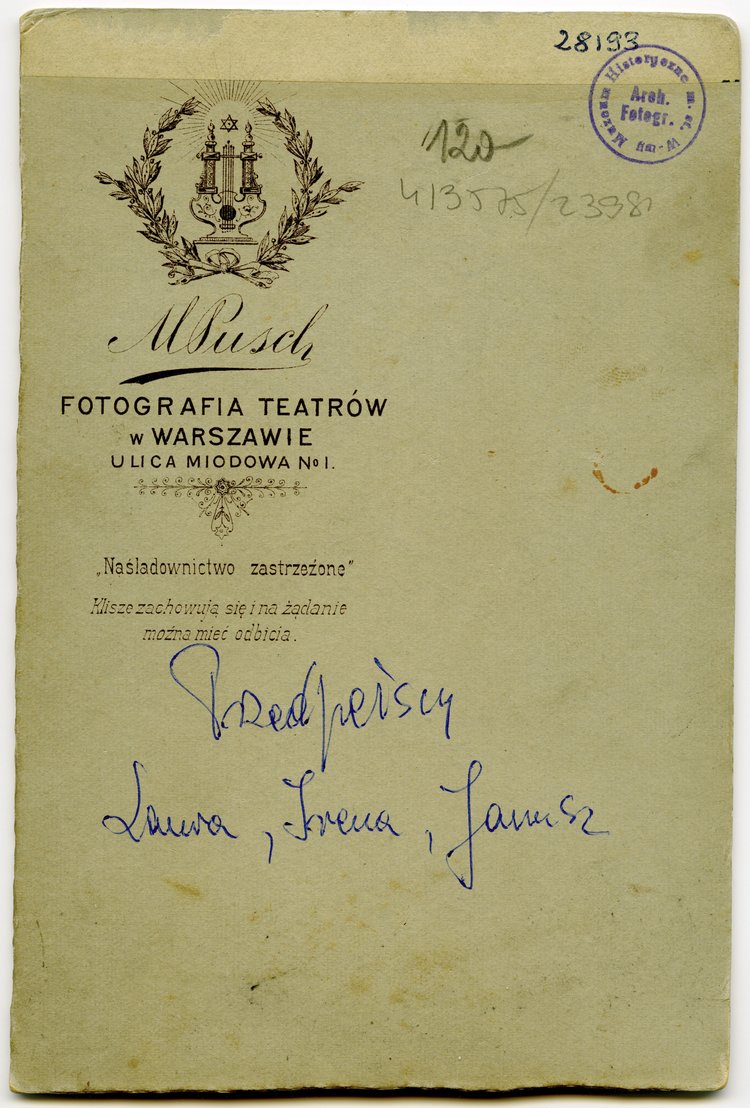 28193
Muzeum Historyczne m. st. W-wy
Arch.
Fotogr.
120
413575/23981
M Pusch
FOTOGRAFIA TEATRÓW
w WARSZAWIE
ULICA MIODOWA No 1.
„Naśladownictwo zastrzeżone”
Klisze zachowują się i na żądanie
można mieć odbicia.
Przedpełscy
Laura, Irena, Janusz